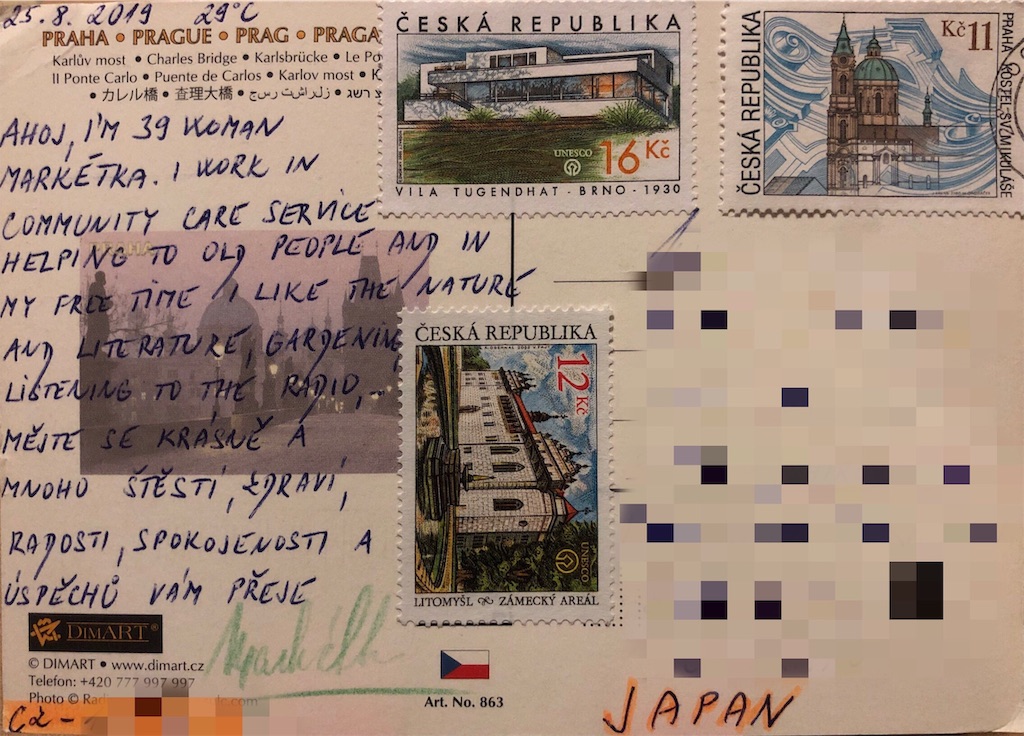 25.8.2019 29°C
PRAHA • PRAGUE • PRAG • PRAGA
Karlův most • Charles Bridge • Karlsbrücke • Le
Il Ponte Carlo • Puente de Carlos • Karlov most •
• カレル橋 • 査理大橋 •
AHOJ, I'M 39 WOMAN
MARKÉTKA. I WORK IN
COMMUNITY CARE SERVICE
HELPING TO OLD PEOPLE AND IN
MY FREE TIME I LIKE THE NATURE
AND LITERATURE, GARDENING
LISTENING TO THE RADIO,..
MĚJTE SE KRÁSNĚ A
MNOHO ŠTĚSTÍ, ZDRAVÍ,
RADOSTI, SPOKOJENOSTI A
ÚSPĚCHŮ VÁM PŘEJE
PRAHA
DIMART®
© DIMART • www.dimart.cz
Telefon: +420 777 997 997
Photo ©
CZ-
ČESKÁ REPUBLIKA
UNESCO
16 Kč
VILA TUGENDHAT - BRNO - 1930
ČESKÁ REPUBLIKA
Kč 11
PRAHA - KOSTEL SV. MIKULÁŠE
ČESKÁ REPUBLIKA
12 Kč
UNESCO
LITOMYŠL ZÁMECKÝ AREÁL
Art. No. 863
JAPAN